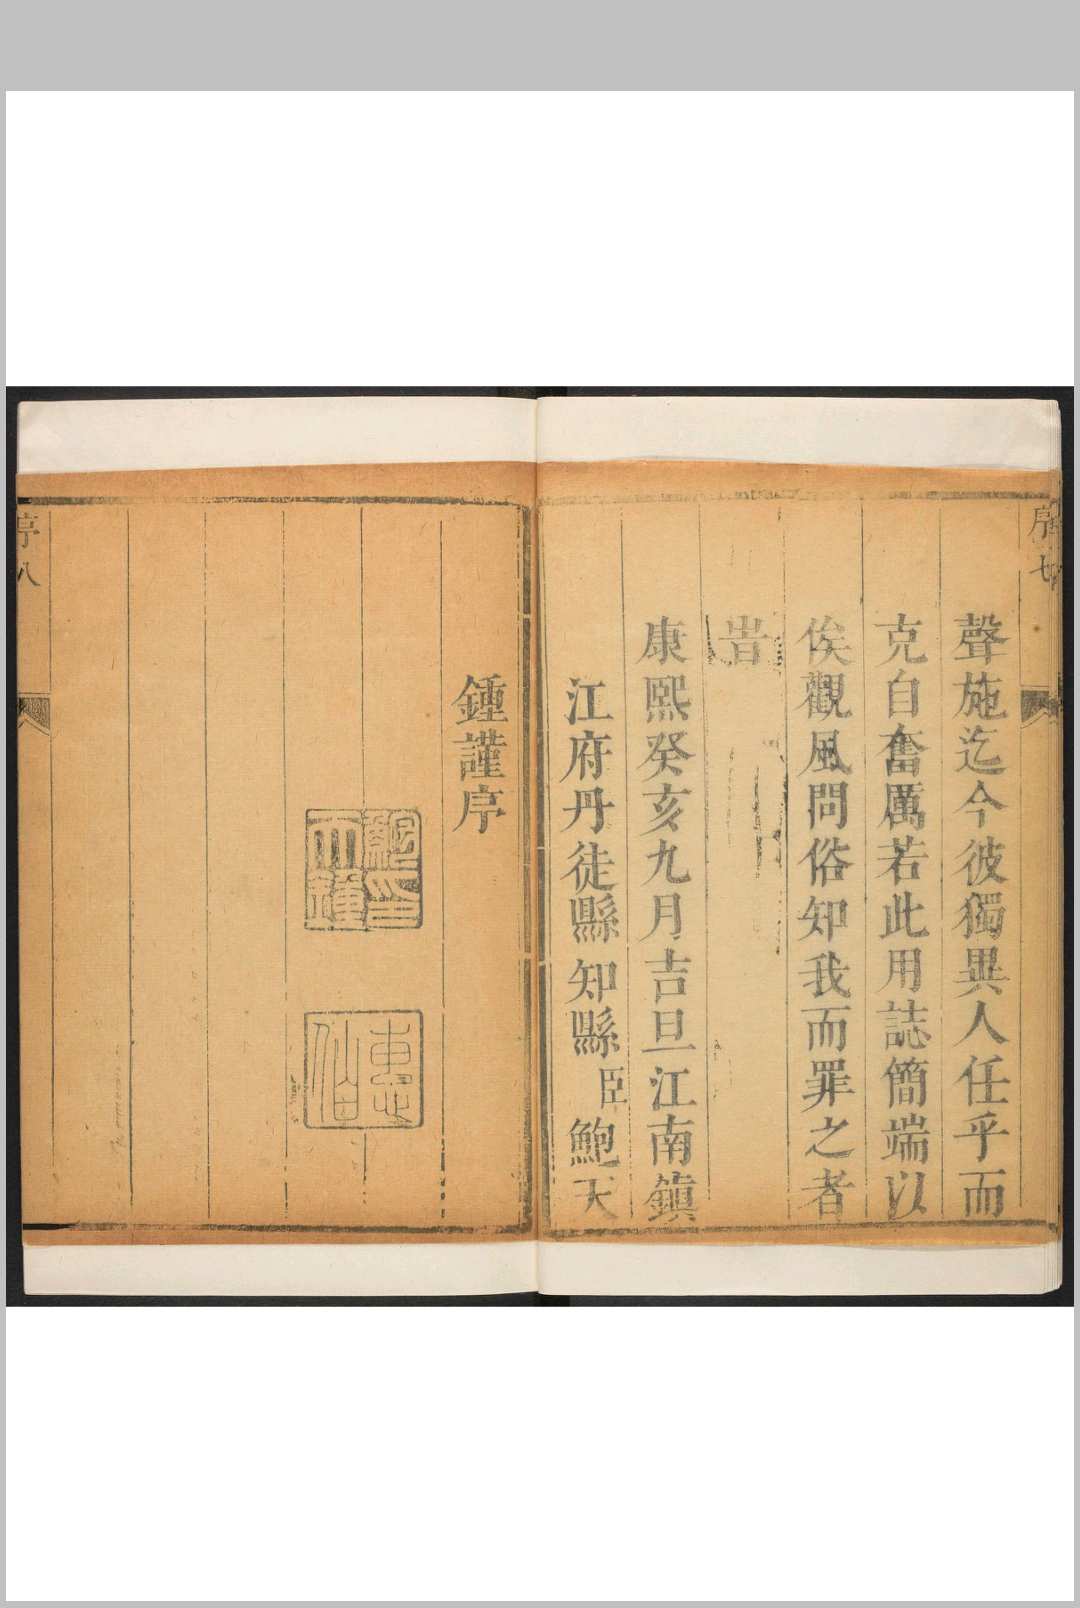 序七
聲施迄今彼獨異人任乎而
克自奮厲若此用誌簡端以
俟觀風問俗知我而罪之者
旹
康熙癸亥九月吉旦江南鎮
江府丹徒縣知縣臣鮑天
鍾謹序
鮑天鍾印
惠仙
序八